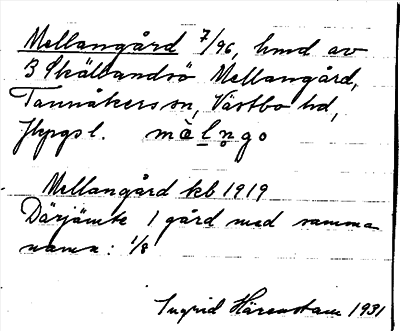 Mellangård 7/96, hmd av
B Skällandsö Mellangård,
Tannåkers sn, Västbo hd,
Jkpgs l. mèlṇgo
Mellangård kb 1919
Därjämte 1 gård med samma
namn: 1/8
Ingrid Härenstam 1931